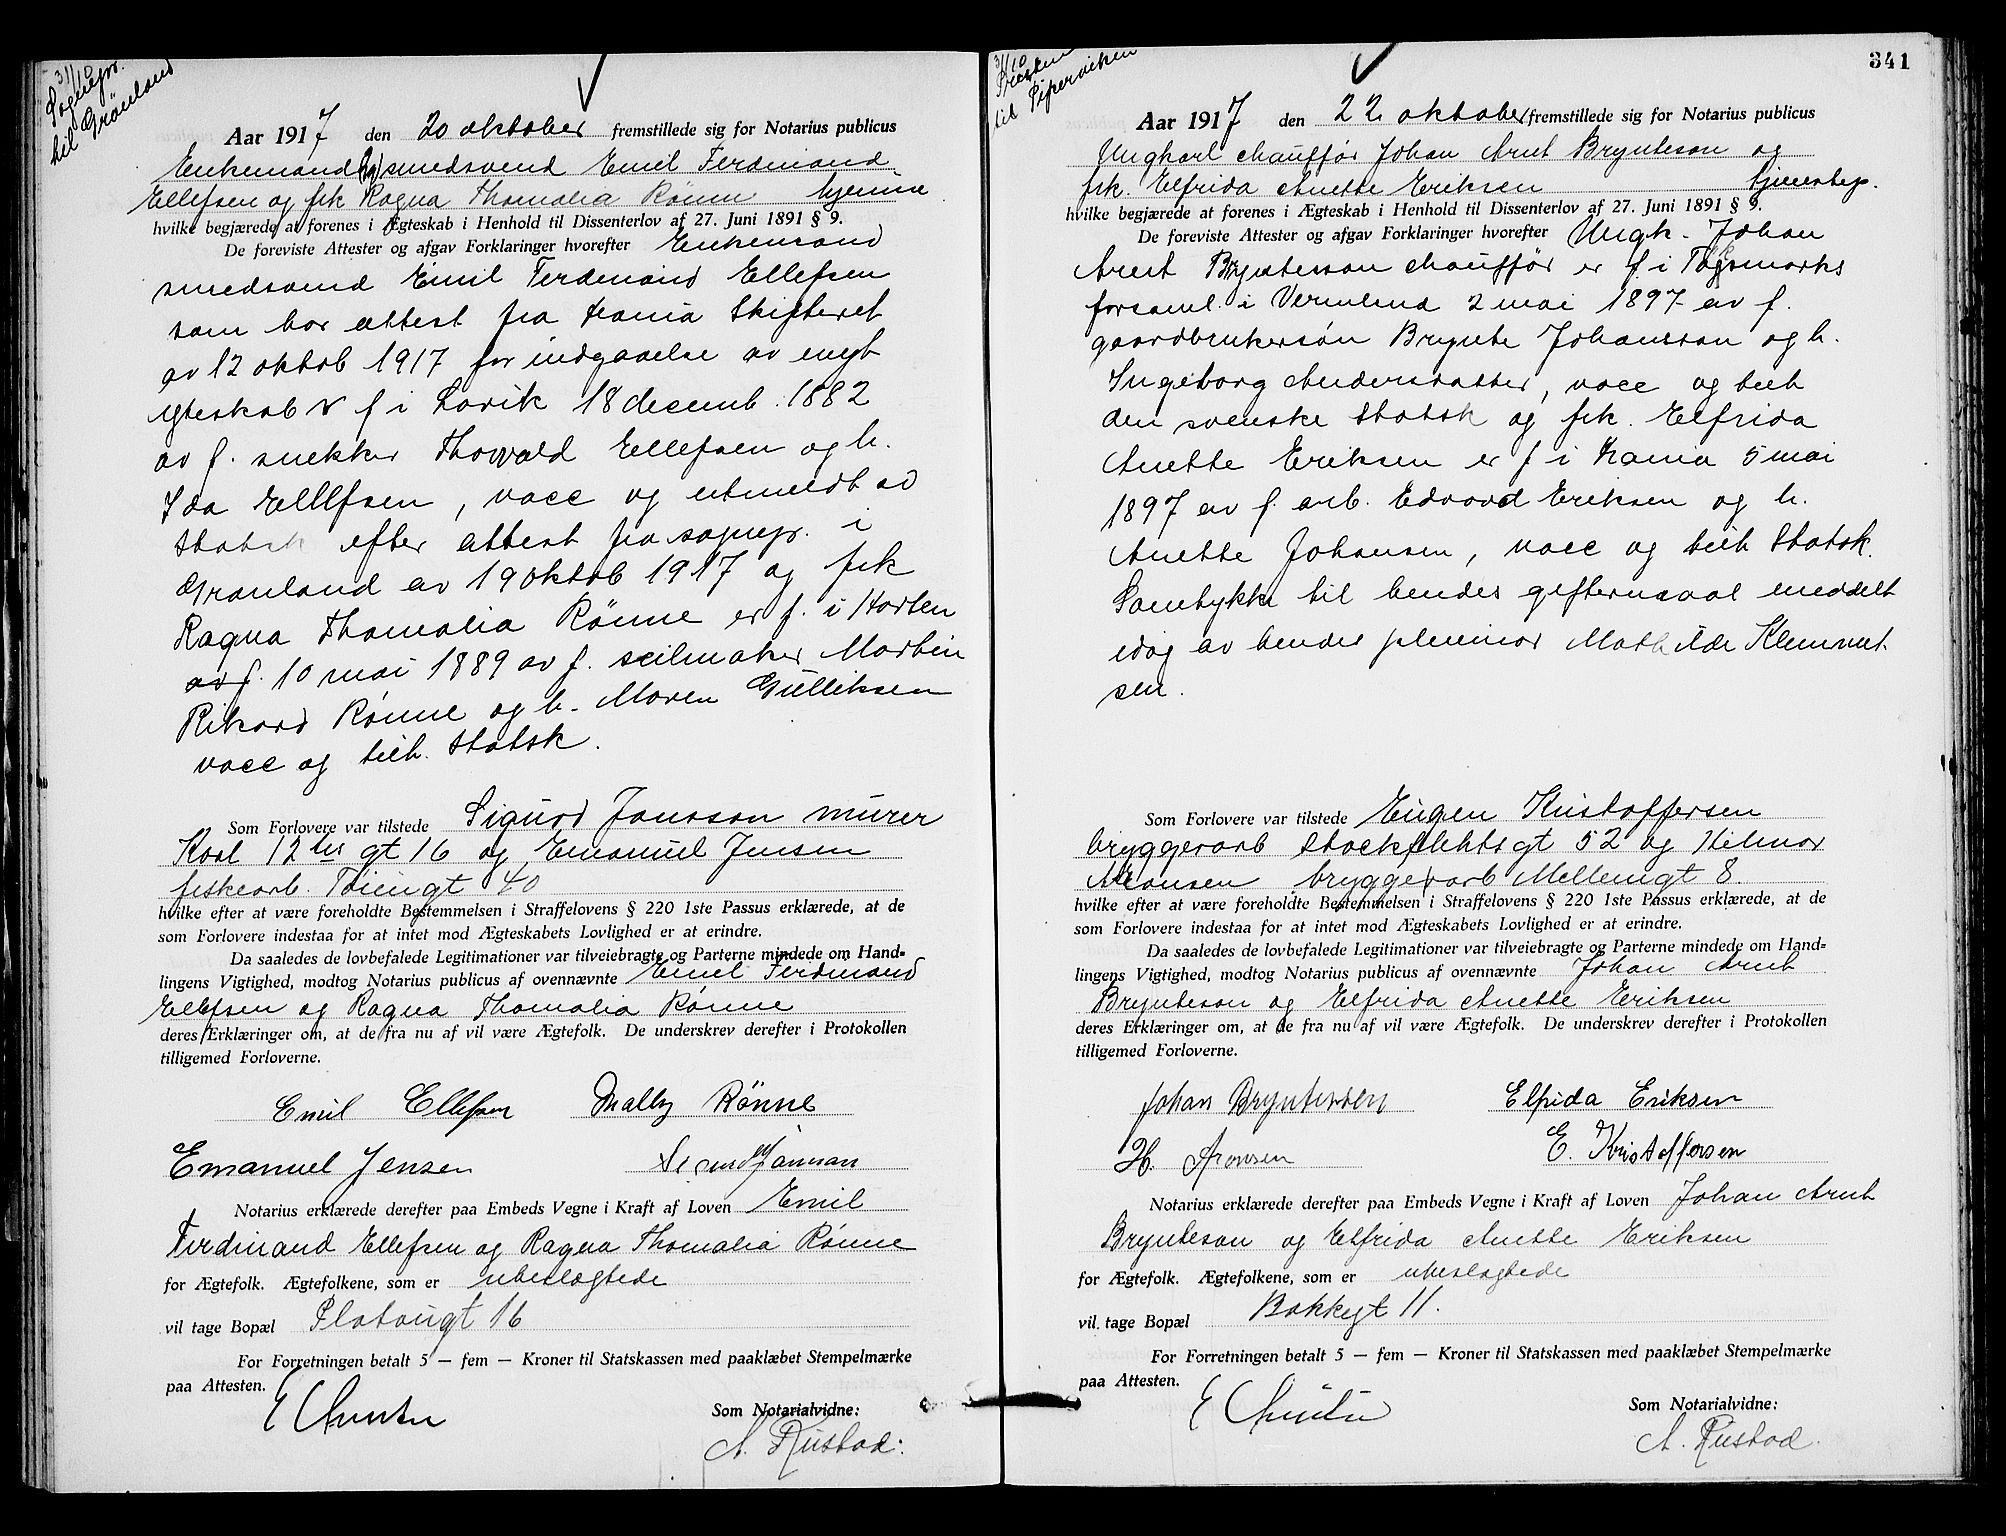 31/10
Sognepr.
til Grönland
Aar 1917 den 20 oktober fremstillede sig for Notarius publicus
Enkemand smedsvend Emil Ferdinand
Ellefsen og frk Ragna Thomalia Rønne hjemme
hvilke begjærede at forenes i Ægteskab i Henhold til Dissenterlov af 27. Juni 1891 § 9.
De foreviste Attester og afgav Forklaringer hvorefter Enkemand
smedsvend Emil Ferdinand Ellefsen
som har attest fra Kania Skifteret
av 12 oktob 1917 for indgaaelse av nyt
egteskab f i Larvik 18 decemb. 1882
av f. snekker Thorvald Ellefsen og h.
Ida Ellefsen, vacc og utmeldt av
Statsk efter attest fra sognepr. i
Grønland av 19 oktob 1917 og frk
Ragna Thomalia Rønne er f. i Horten
av f. 10 mai 1889 av f. seilmaker Martin
Rikard Rønne og h. Maren Gulliksen
vacc og tilh. Statsk.
Som Forlovere var tilstede Sigurd Jansson murer
Karl 12tes gt 16 og Emanuel Jensen
fiskearb. Tøiengt 40
hvilke efter at være foreholdte Bestemmelsen i Straffelovens § 220 1ste Passus erklærede, at de
som Forlovere indestaa for at intet mod Ægteskabets Lovlighed er at erindre.
Da saaledes de lovbefalede Legitimationer var tilveiebragte og Parterne mindede om Hand-
lingens Vigtighed, modtog Notarius publicus af ovennævnte Emil Ferdinand
Ellefsen og Ragna Thomalia Rønne
deres Erklæringer om, at de fra nu af vil være Ægtefolk. De underskrev derefter i Protokollen
tilligemed Forloverne.
Emil Ellefsen Mally Rönne
Emanuel Jensen Sigurd Janson
Notarius erklærede derefter paa Embeds Vegne i Kraft af Loven Emil
Ferdinand Ellefsen og Ragna Thomalia Rønne
for Ægtefolk. Ægtefolkene, som er ubeslægtede
vil tage Bopæl Platougt 16
For Forretningen betalt 5 — fem — Kroner til Statskassen med paaklæbet Stempelmærke
paa Attesten.
Som Notarialvidne:
A. Rustad.
341
31/10
Presten
til Piperviken
Aar 1917 den 22 oktober fremstillede sig for Notarius publicus
Ungkarl chauffør Johan Arnt Brynteson og
frk. Elfrida Anette Eriksen tjenestep.
hvilke begjærede at forenes i Ægteskab i Henhold til Dissenterlov af 27. Juni 1891 § 9.
De foreviste Attester og afgav Forklaringer hvorefter Ungk. Johan
Arnt Bryntesson chauffør er f. i Töcksmarks
forsaml. i Vermland 2 mai 1897 av f.
gaardbrukersøn Brynte Johansson og h.
Ingeborg Andersdatter, vacc og tilh
den svenske Statsk og frk. Elfrida
Anette Eriksen er f i Kania 5 mai
1897 av f. arb. Edvard Eriksen og h.
Anette Johansen, vacc og tilh Statsk.
Samtykke til hendes giftermaal meddelt
idag av hendes pleiemor Mathilde Klemmet-
sen.
Som Forlovere var tilstede Eugen Kristoffersen
bryggerarb Stockflehts gt 52 og Hilmar
Aronsen bryggerarb Møllengt 8.
hvilke efter at være foreholdte Bestemmelsen i Straffelovens § 220 1ste Passus erklærede, at de
som Forlovere indestaa for at intet mod Ægteskabets Lovlighed er at erindre.
Da saaledes de lovbefalede Legitimationer var tilveiebragte og Parterne mindede om Hand-
lingens Vigtighed, modtog Notarius publicus af ovennævnte Johan Arnt
Brynteson og Elfrida Anette Eriksen
deres Erklæringer om, at de fra nu af vil være Ægtefolk. De underskrev derefter i Protokollen
tilligemed Forloverne.
Johan Bryntesson Elfrida Eriksen
H. Aronsen E. Kristoffersen
Notarius erklærede derefter paa Embeds Vegne i Kraft af Loven Johan Arnt
Brynteson og Elfrida Anette Eriksen
for Ægtefolk. Ægtefolkene, som er ubeslægtede
vil tage Bopæl Bakkegt 11.
For Forretningen betalt 5 — fem — Kroner til Statskassen med paaklæbet Stempelmærke
paa Attesten.
Som Notarialvidne:
A. Rustad.